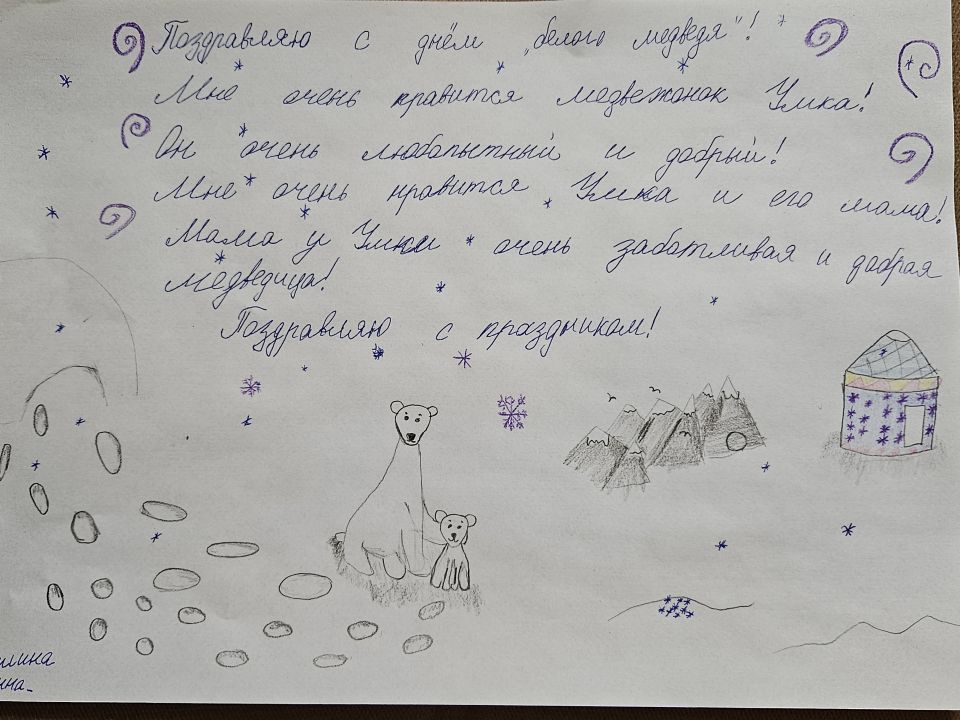 Поздравляю с днём „белого медведя"!
Мне очень нравится медвежонок Умка!
Он очень любопытный и добрый!
Мне очень нравится Умка и его мама!
Мама у Умки очень заботливая и добрая
медведица!
Поздравляю с праздником!